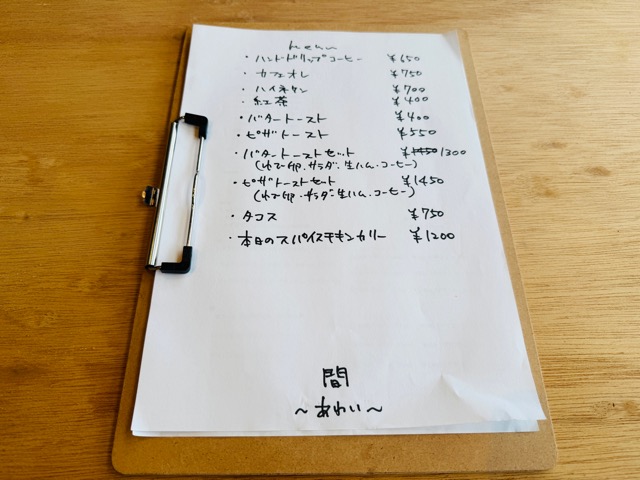 menu
・ハンドドリップコーヒー ¥650
・カフェオレ ¥750
・ハイネケン ¥700
・紅茶 ¥400
・バタートースト ¥400
・ピザトースト ¥550
・バタートーストセット ¥1450 1300
(ゆで卵・サラダ・生ハム・コーヒー)
・ピザトーストセット ¥1450
(ゆで卵・サラダ・生ハム・コーヒー)
・タコス ¥750
・本日のスパイスチキンカリー ¥1200
間
～あわい～